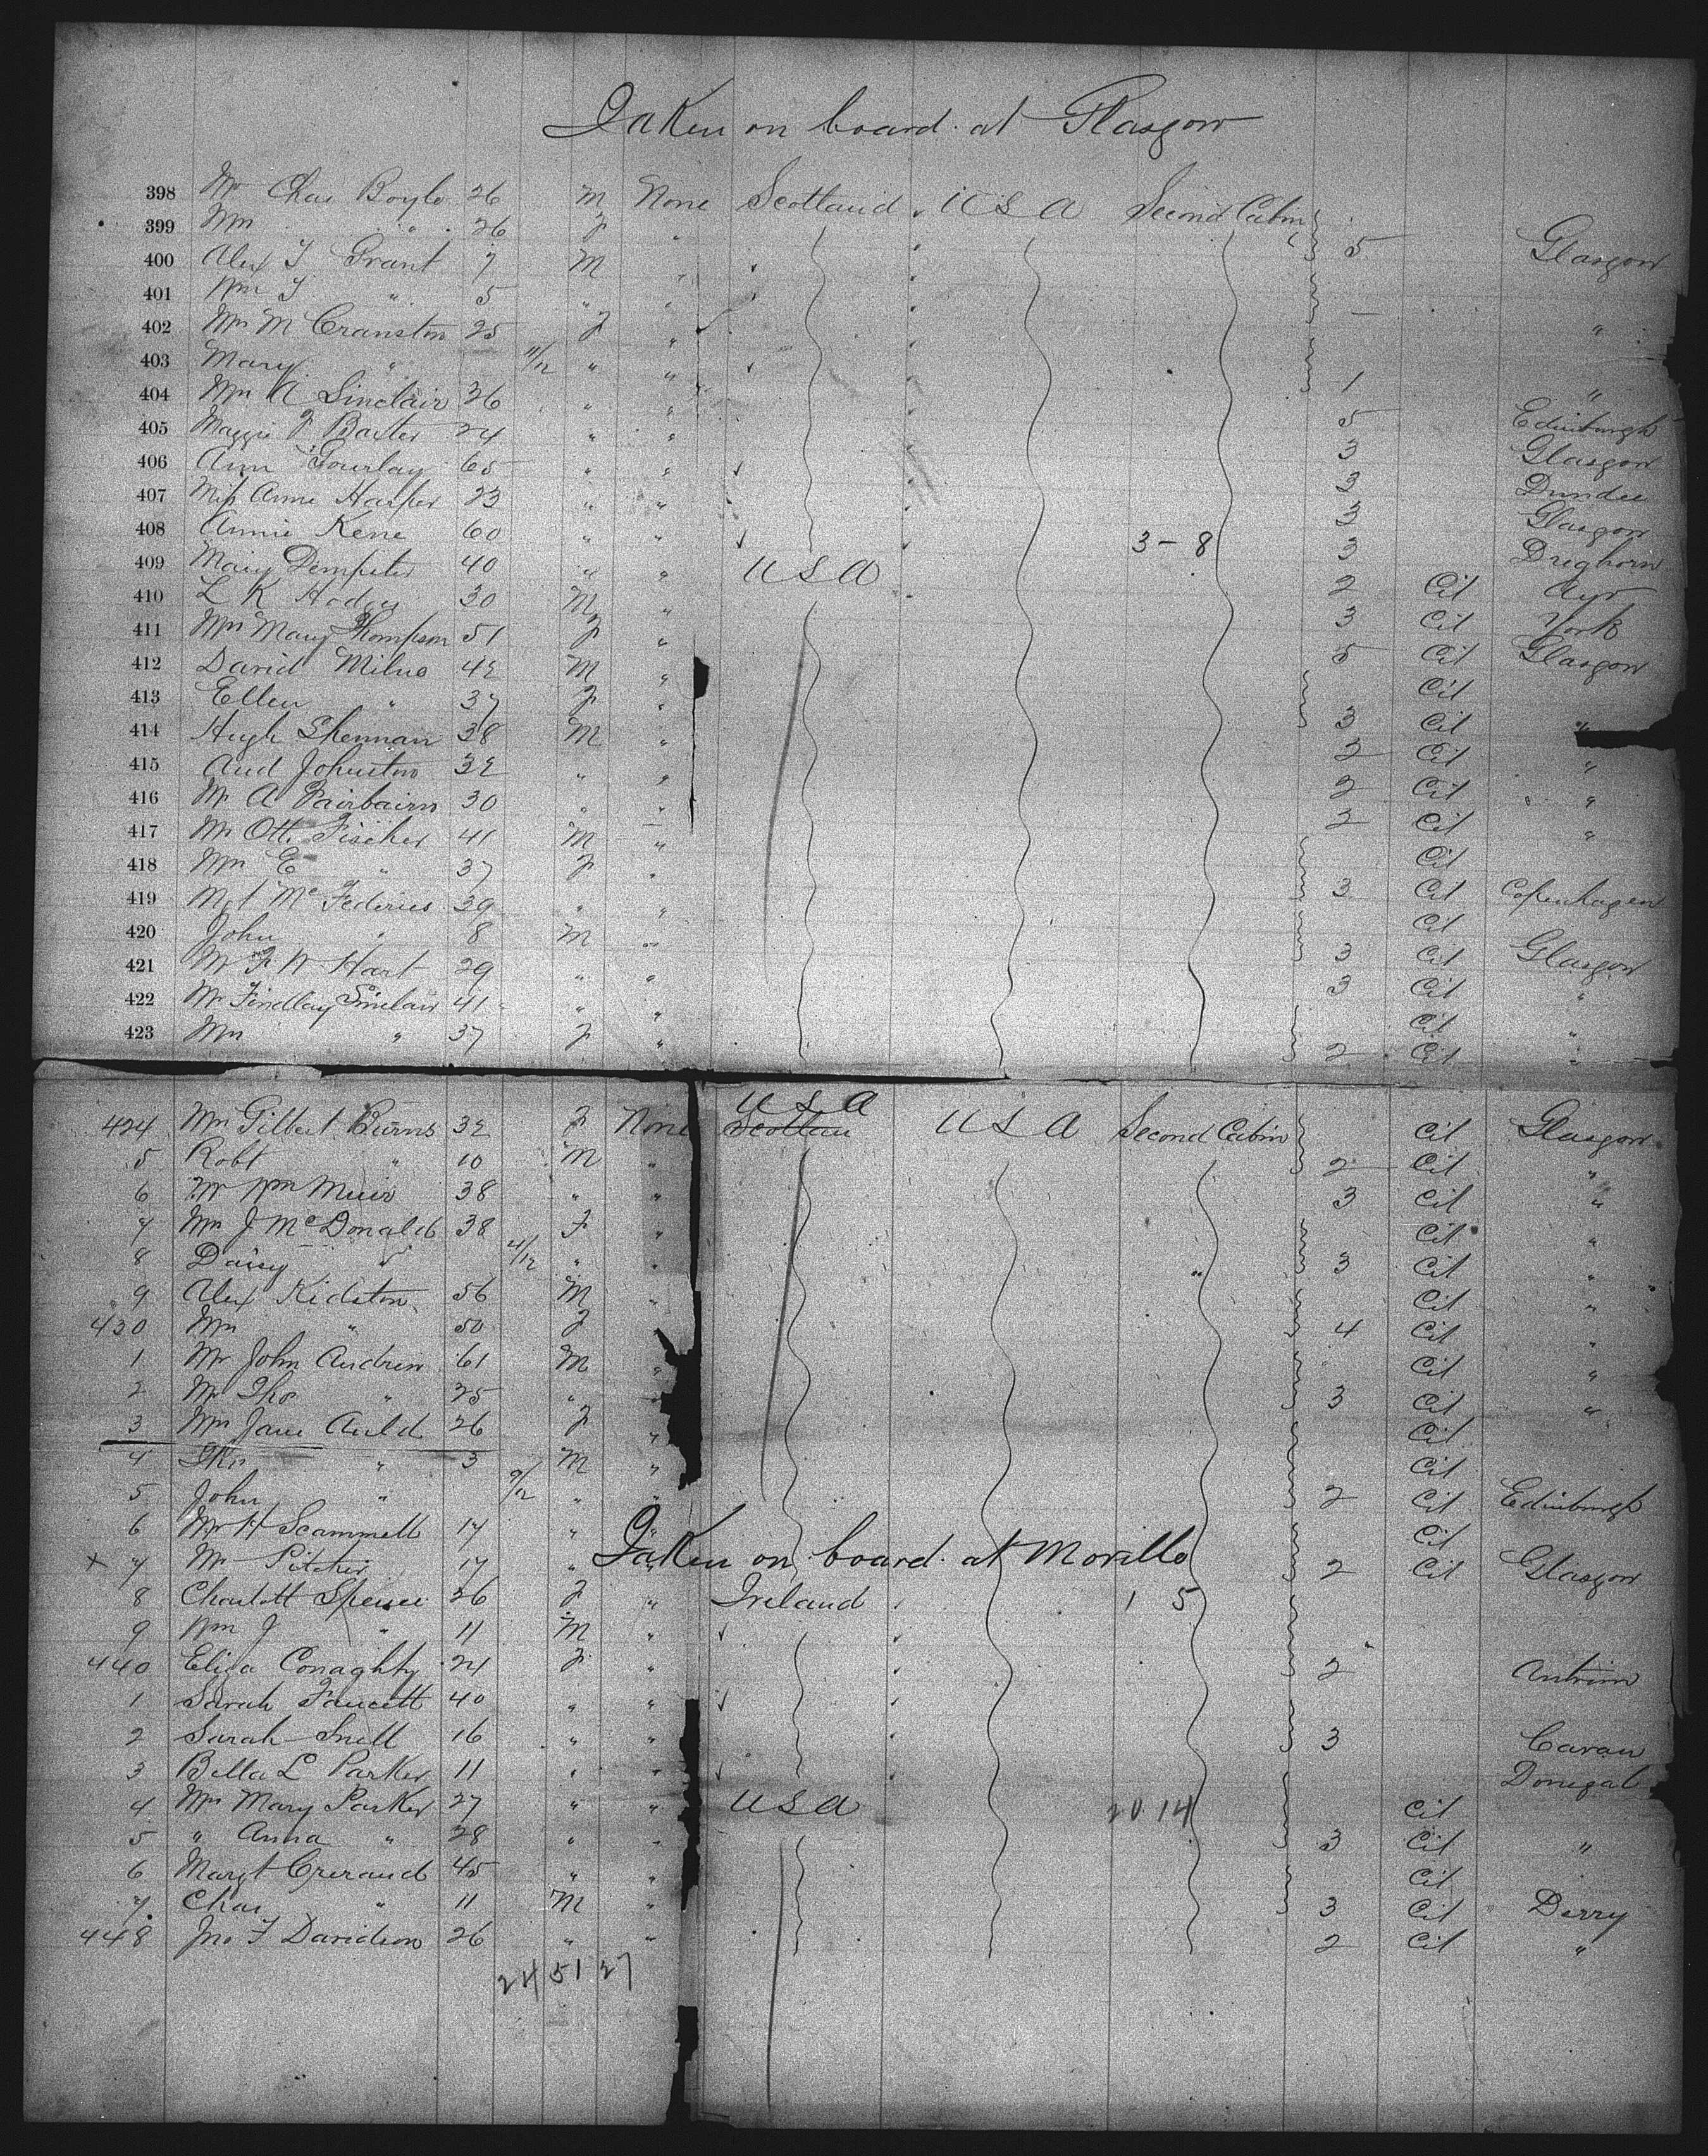 Taken on board at Glasgow
398 Mr Chas Boyle 26 M None Scotland USA Second Cabin
399 Mrs " 26 F " 5 Glasgow
400 Alex T Grant 7 M "
401 Wm T " 5 " " —
402 Mrs M Cranston 25 F " "
403 Mary " 11/12 " " 1
404 Mrs A Sinclair 26 " " 5 Edinburgh
405 Maggie F Baxter 24 " " 3 Glasgow
406 Ann Gourlay 65 " " 3 Dundee
407 Miss Annie Harper 23 " " 3 Glasgow
408 Annie Kene 60 " " 3 - 8 3 Dreghorn
409 Mary Dempster 40 " " USA 2 Cit Ayr
410 L K Hodges 30 M " 3 Cit York
411 Mrs Mary Thompson 51 F " 5 Cit Glasgow
412 David Milne 42 M " Cit
413 Ellen " 37 F " 3 Cit "
414 Hugh Shennan 38 M " 2 Cit "
415 And Johnston 32 " " 2 Cit "
416 Mr A Fairbairn 30 " " 2 Cit "
417 Mr Otto Fischer 41 M " Cit
418 Mrs E " 37 F " 3 Cit Copenhagen
419 Mgt Mc Federies 39 " " Cit
420 John " 8 M " 3 Cit Glasgow
421 Mr F W Hart 29 " " 3 Cit "
422 Mr Findlay Sinclair 41 " " Cit "
423 Mrs " 37 F " 2 Cit "
424 Mrs Gilbert Burns 32 F None USA Scotland USA Second Cabin Cit Glasgow
5 Robt " 10 M " 2 Cit "
6 Mr Wm Muir 38 " " 3 Cit "
7 Mrs J McDonald 38 F " Cit "
8 Daisy " 4/12 " " 3 Cit "
9 Alex Kidston 56 M " Cit "
430 Mrs " 50 F " 4 Cit "
1 Mr John Andrew 61 M " Cit "
2 Mr Thos " 25 " " 3 Cit "
3 Mrs Jane Auld 26 F " Cit
4 Thos " 3 M " Cit
5 John " 9/12 " " 2 Cit Edinburgh
6 Mr H Scammell 17 " " Cit
Taken on board at Moville
+ 7 Mr Pitcher 17 " " 2 Cit Glasgow
8 Charlott Spence 26 F " Ireland 1 5
9 Wm J " 11 M "
440 Eliza Conaghty 24 F " 2 Antrim
1 Sarah Faucett 40 " "
2 Sarah Snell 16 " " 3 Cavan
3 Bella L Parker 11 " " Donegal
4 Mrs Mary Parker 27 " " USA 20 14 Cit
5 " Anna " 28 " " 3 Cit "
6 Margt Creraud 45 " " Cit
7 Chas " 11 M " 3 Cit Derry
448 Jno F Davidson 26 " " 2 Cit "
24 51 27